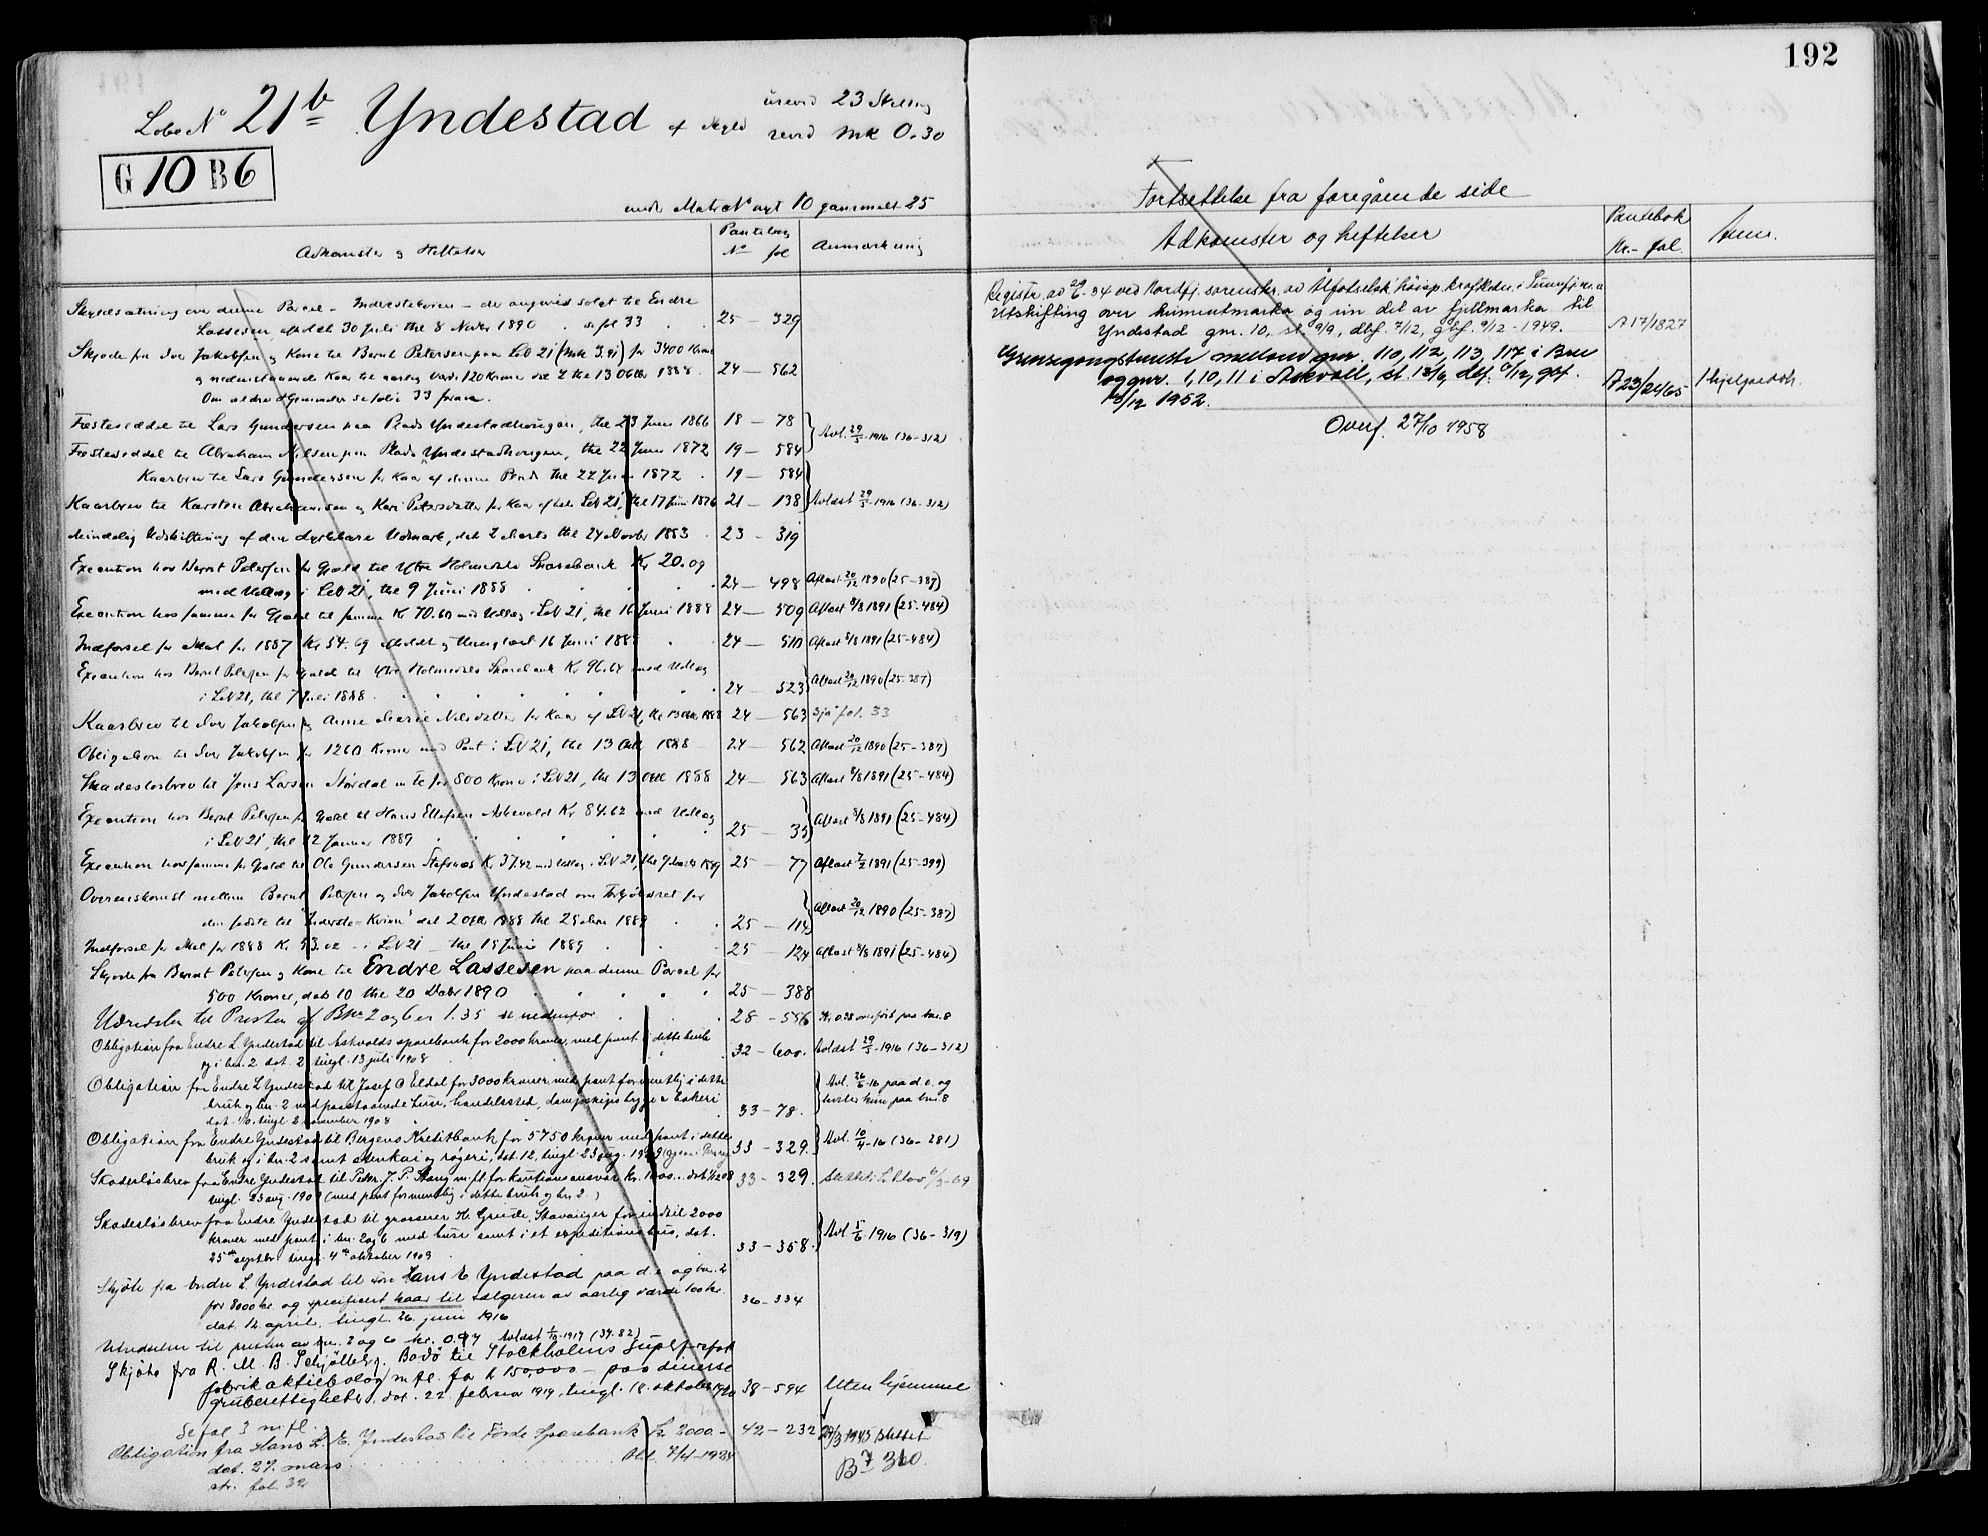 Løbe No 21b Yndestad af Skyld urevid 23 Skilling
revid Mk 0.30
G 10 B 6
under Matr. No nyt 10 gammelt 25
Adkomster og Heftelser
Pantebog
No fol
Anmærkning
Skyldsætning over denne Parcel - Inderstekvien - der angives solgt til Endre
Lassesen, afholdt 30 Juli thl 8 Novbr 1890 . se fol 33 25 - 329
Skjøde fra Iver Jakobsen og Kone til Bernt Petersen paa LNo 21 (Mk 3.91) for 3400 Kroner
og nedenstaaende Kaar til aarlig Værdi 120 Kroner dat 4 thl 13 Oktbr 1888 . 24 - 562
Om ældre Hjemmeler se folio 33 foran.
Fæsteseddel til Lars Gundersen paa Plads Yndestadhougen, thl 23 Juni 1866 18 - 78 Avl. 29/5 1916 (36-312)
Fæsteseddel til Abraham Nilsen paa Plads Yndestadhougen, thl 22 Juni 1872 19 - 584
Kaarbrev til Lars Gundersen for Kaar af denne Plads thl 22 Juni 1872 . 19 - 584
Kaarbrev til Karsten Abrahamsen og Kari Petersdatter for Kaar af hele LNo 21, thl 17 Juni 1876 21 - 138 Avløst 29/5 1916 (36-312)
Mindelig Udskiftning af den dyrkbare Udmark, dat 2 Marts thl 24 Novbr 1883 . 23 - 319
Execution hos Bernt Petersen for Gjæld til Ytre Holmedals Sparebank Kr 20.09
med Udlæg i LNo 21, thl 9 Juni 1888 24 - 498 Aflæst 20/12 1890 (25-387)
Execution hos samme for Gjæld til samme Kr 70.60 med Udlæg i LNo 21, thl 16 Juni 1888 24 - 509 Aflæst 8/8 1891 (25-484)
Indførsel for Skat for 1887 Kr 54. og afholdt og thinglæst 16 Juni 1888 24 - 510 Aflæst 8/8 1891 (25-484)
Execution hos Bernt Petersen for Gjæld til Ytre Holmedals Sparebank Kr 96.64 med Udlæg
i LNo 21, thl 7 Juli 1888 24 - 523 Aflæst 20/12 1890 (25-387)
Kaarbrev til Iver Jakobsen og Anne Marie Nilsdatter for Kaar af LNo 21, thl 13 Oktbr 1888 24 - 563 Sjå fol. 33
Obligation til Iver Jakobsen for 1260 Kroner med Pant i LNo 21, thl 13 Oktb 1888 24 - 562 Aflæst 20/12 1890 (25-387)
Skadesløsbrev til Jens Larsen Størdal indtil for 800 Kroner i LNo 21, thl 13 Oktb 1888 24 - 563 Aflæst 8/8 1891 (25-484)
Execution hos Bernt Petersen for Gjæld til Hans Ellefsen Askevold Kr 84.62 med Udlæg
i LNo 21, thl 12 Januar 1889 25 - 35 Aflæst 8/8 1891 (25-484)
Execution hos samme for Gjæld til Ole Gundersen Stafsnæs Kr 37.42 med Udlæg i LNo 21, thl 9 Marts 1889 25 - 77 Aflæst 7/2 1891 (25-399)
Overenskomst mellem Bernt Petersen og Iver Jakobsen Yndestad om Forkjøbsret for
den første til "Inderste-Kvien" dat 2 Oktb 1888 thl 25 1889 25 - 114 Aflæst 20/12 1890 (25-387)
Indførsel for Skat for 1888 Kr 53.02 - i LNo 21 - thl 15 Juni 1889 25 - 124 Aflæst 8/8 1891 (25-484)
Skjøde fra Bernt Petersen og Kone til Endre Lassesen paa denne Parcel for
500 Kroner, dat 10 thl 20 Decbr 1890 25 - 388
Udredsler til Presten af BNr 2 og 6 er 1.35 se nedenfor 28 - 556 Kr. 0.38 overført paa bnr. 8
Obligation fra Endre L. Yndestad til Askvolds sparebank for 2000 kroner, med pant i dette bruk
og i bnr. 2 dat. 2 tingl. 13 juli 1908 32 - 600. Avløst 29/5 1916 (36-312)
Obligation fra Endre L Yndestad til Josef O Eldal for 3000 kroner med pant foruentlig i dette
bruk og bnr. 2 med paastaaende huse, handelssted, dampskipsbrygge & bakeri
dat. 1/10. tingl. 2 november 1908 33 - 78. Avl. 26/6-16 paa d.e. og
hviler kun paa bnr. 8
Obligation fra Endre Yndestad til Bergens Kreditbank for 5750 kroner med pant i dette
bruk og i bnr. 2 samt dampkai og røgeri, dat. 12, tingl. 23 aug. 1909 33 - 329. Avl. 10/4-16 (36-281)
Skadesløsbrev fra Endre Yndestad til Peder J. P. Stang m. fl. for kautionsansvar Kr. 1000.- dat. 1/12 08
tingl. 23 aug. 1909 (med pant foruentlig i dette bruk og bnr. 2.) 33 - 329. slettet: L. h. lov 6/3-69
Skadesløsbrev fra Endre Yndestad til grosserer H. Greude, Stavanger for indtil 2000
kroner med pant i bnr. 2 og 6 med huse samt i et expeditionshus, dat.
25de septbr. tingl. 4de oktober 1909 33 - 358. Avl 5/6 1916 (36-319)
Skjøte fra Endre L. Yndestad til søn Hans E Yndestad paa d.e. og bnr. 2
for 8000 kr. og specificert kaar til sælgeren av aarlig værdi 100 kr.
dat. 12 april, tingl. 26. juni 1916 36 - 334
Utredselen til presten av bnr. 2 og 6 kr. 0.97 Avløst 1/10 1917 (37.82)
Skjøte fra R. M. B. Schjølberg, Bodø til Stockholms Superfosfat
fabrik aktiebolag m. fl. for k 150,000 - paa diverse
gruberettigheter, dat. 22 februar 1919, tingl. 18. oktober 1920 38 - 594 Uten hjemmel
Se fol 3 m. fl.
Obligation fra Hans L. E. Yndestad til Førde Sparebank Kr 2000.- 42 - 232 24/3 1945 slettet
dat. 27. mars tgl. 7/4-1934 B 7 310
str. fol. 32
192
Fortsettelse fra foregående side
Adkomster og heftelser
Pantebok
Nr. - fol.
Anm.
Registr. av 29/6-34 ved Nordfj. sorenskr. av Ufotselsk. høisp. kraftledn. i Sunnfj. m. a
Utskifting over heimeutmarka og ein del av fjellmarka til
Yndestad gnr. 10, st. 9/9, dbf. 7/12, gbf. 9/12-1949. A 17/1827
Grensegangstvist mellom gnr. 110, 112, 113, 117 i Bru
og gnr. 1, 10, 11 i Askvoll, st. 18/6, dbf. 6/12, gbf.
18/12 1952. A 23/2465 1 hjelpedok.
Overf. 27/10 1958